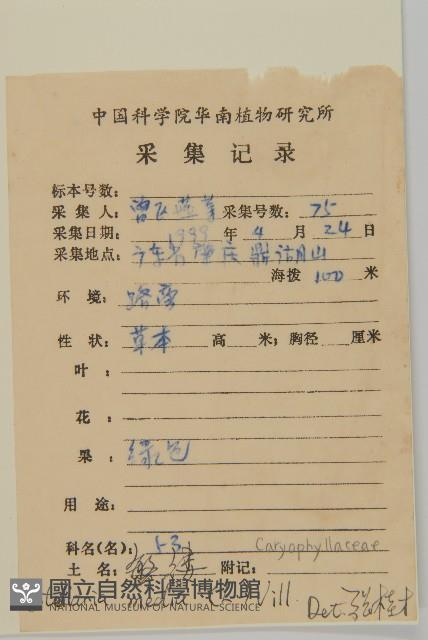 中国科学院华南植物研究所
采集记录
标本号数:
采集人: 曾飞燕等 采集号数: 75
采集日期: 1999 年 4 月 24 日
采集地点: 广东省肇庆鼎湖山
海拨 100 米
环境: 路旁
性状: 草本 高 米; 胸径 厘米
叶:
花:
果: 绿色
用途:
科名(名): 53 Caryophyllaceae
土名: 繁缕 附记:
國立自然科學博物館
NATIONAL MUSEUM OF NATURAL SCIENCE
Vill. Det.